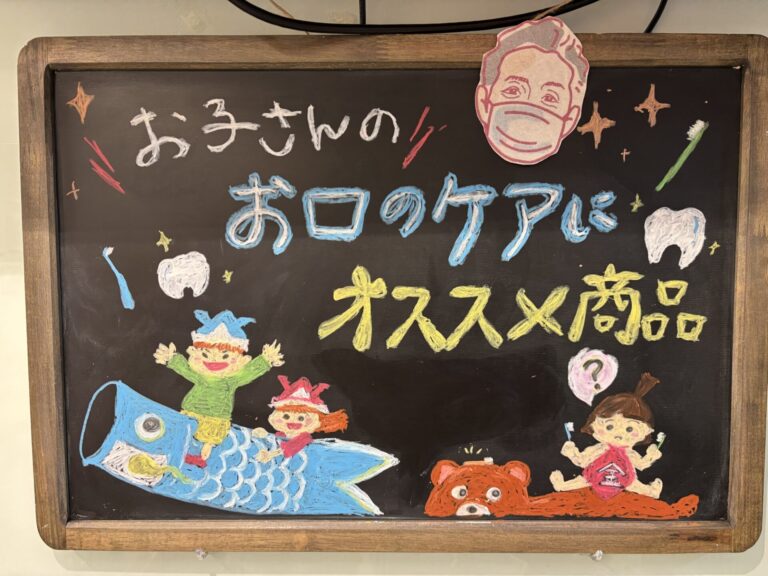 お子さんの
お口のケアに
オススメ商品
?
金